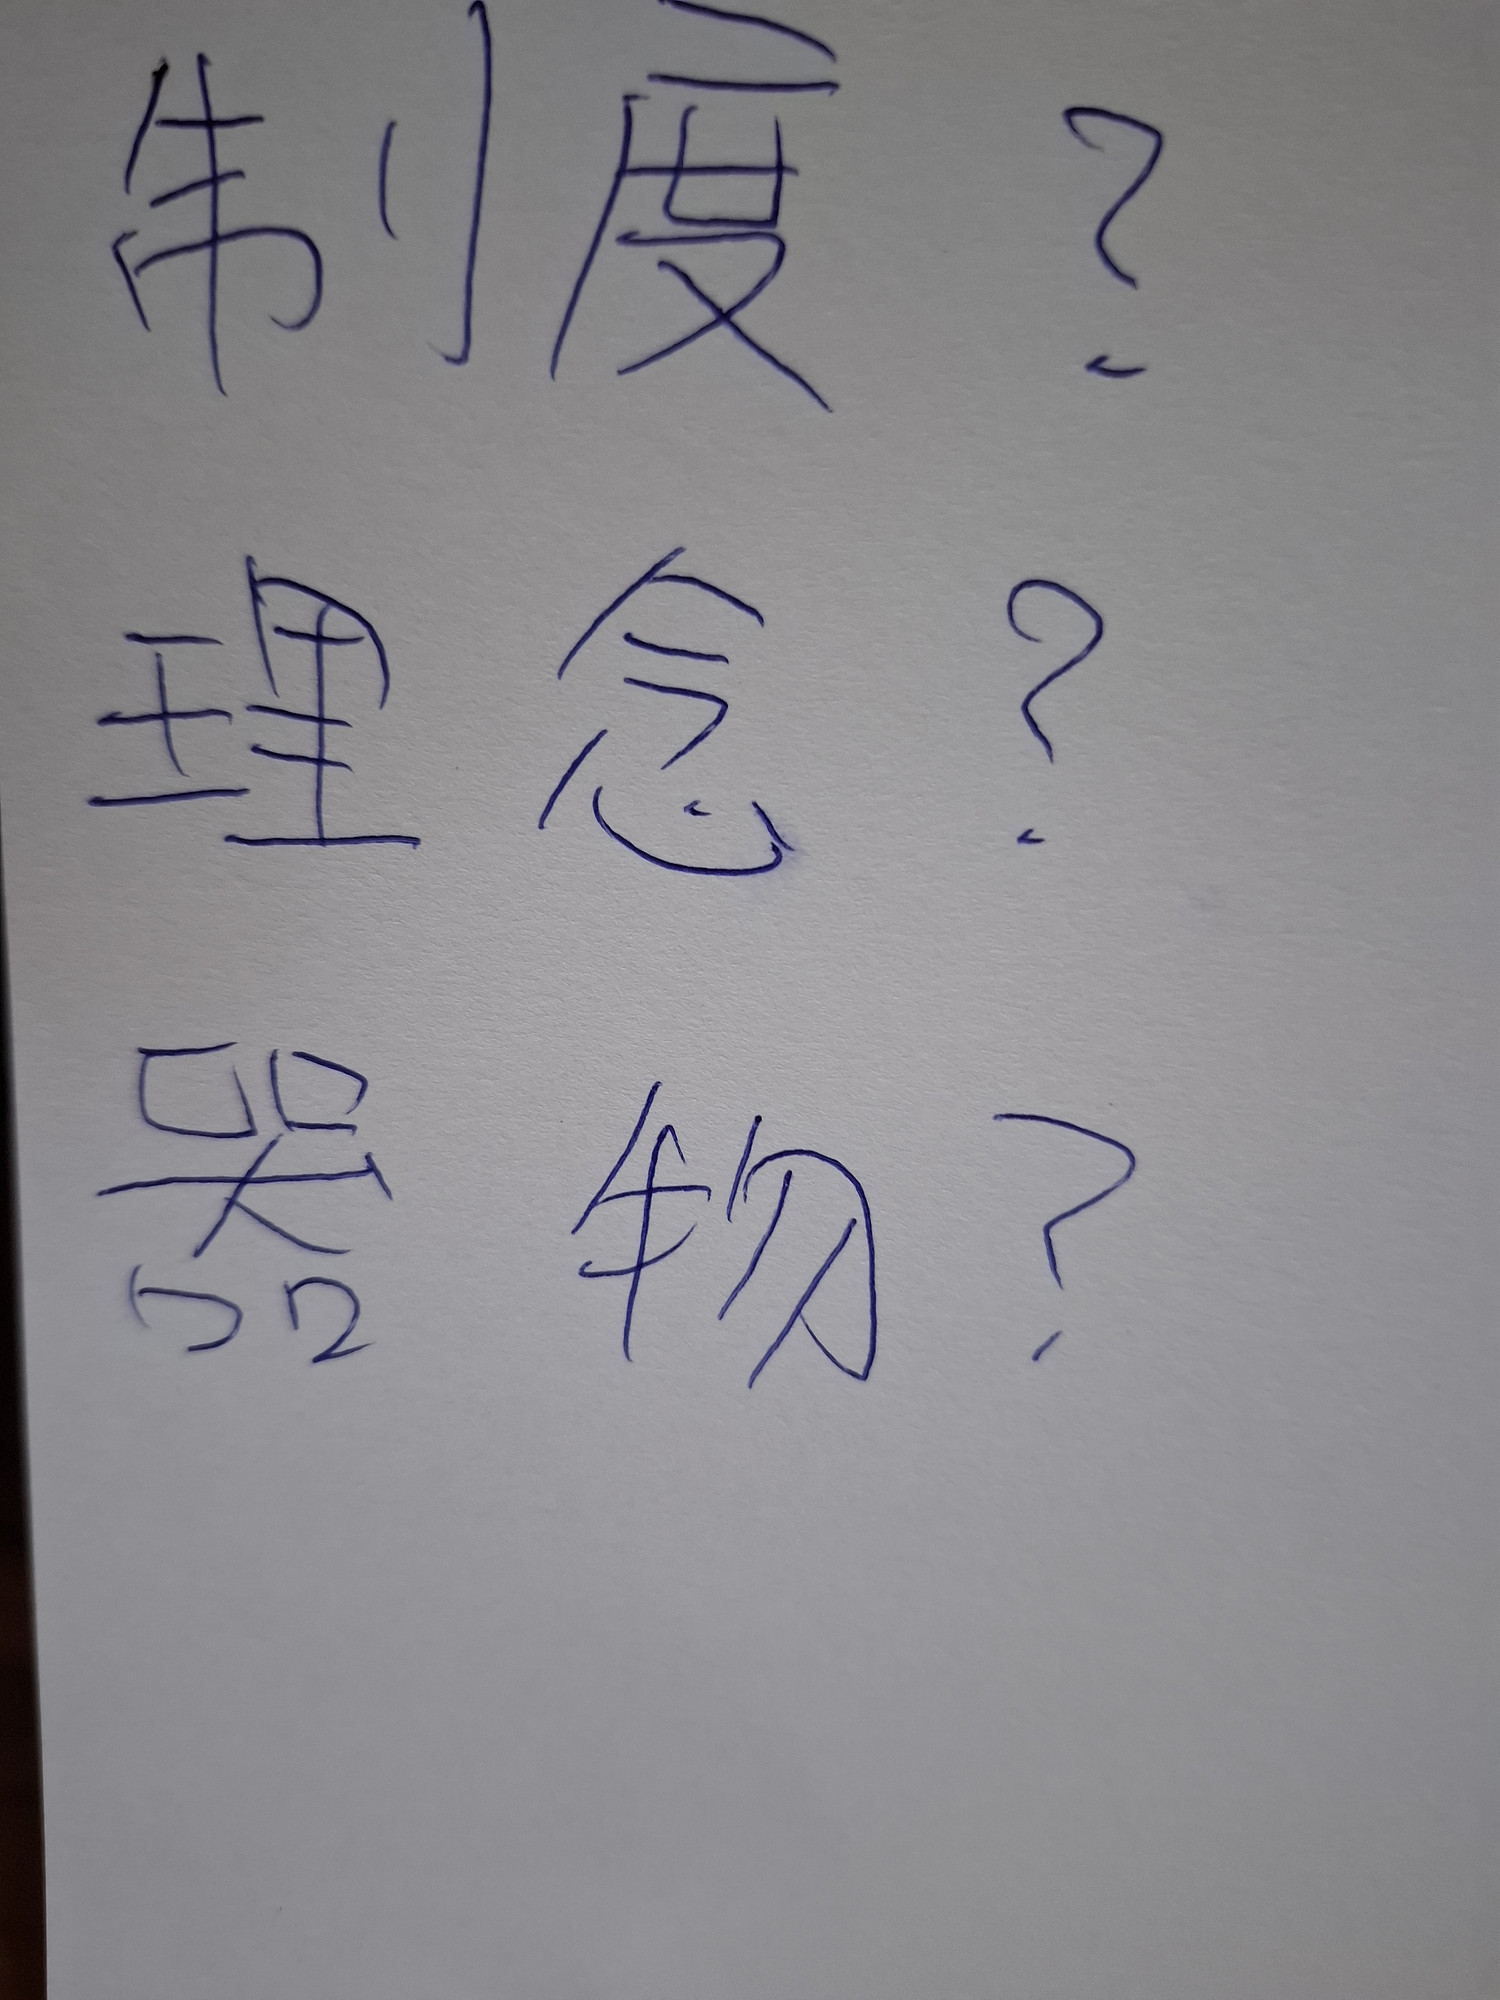 制度?
理念?
器物?